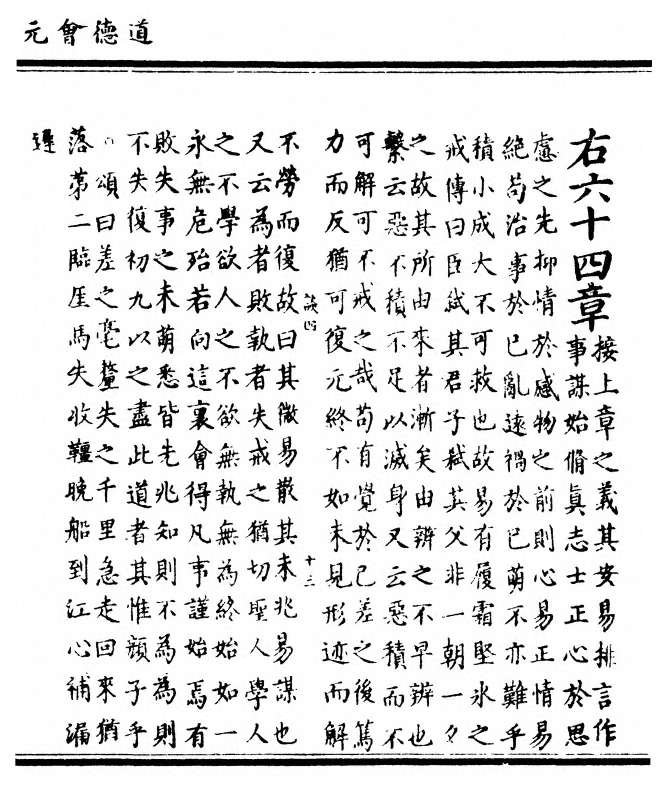 道德會元
右六十四章
接上章之義其安易排言作
事謀始脩眞志士正心於思
慮之先抑情於感物之前則心易正情易
絕苟治事於已亂遠禍於已萌不亦難乎
積小成大不可救也故易有履霜堅冰之
戒傳曰臣弒其君子弒其父非一朝一夕
之故其所由來者漸矣由辨之不早辨也
繫云惡不積不足以滅身又云惡積而不
可解可不戒之哉苟有覺於已差之後篤
力而反猶可復元終不如未見形迹而解
四 十三
不勞而復故曰其微易散其未兆易謀也
又云為者敗執者失戒之猶切聖人學人
之不學欲人之不欲無執無為終始如一
永無危殆若向這裏會得凡事謹始焉有
敗失事之未萌悉皆先兆知則不為為則
不失復初九以之盡此道者其惟顏子乎
頌曰差之毫釐失之千里急走回來猶
落第二臨厓馬失收韁晚船到江心補漏
遲